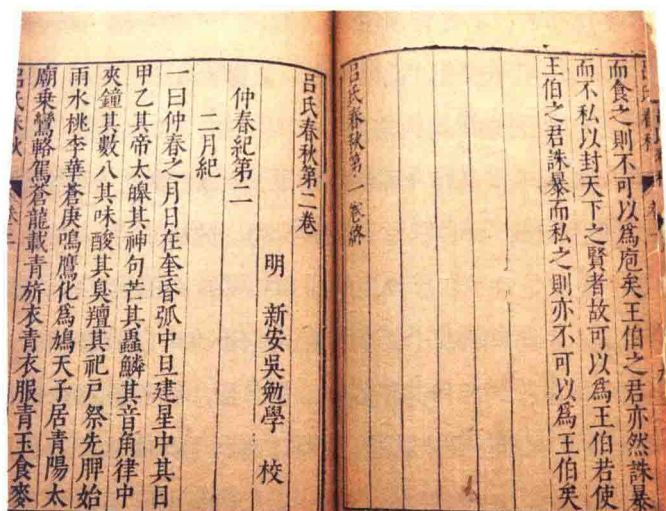 而食之則不可以爲庖矣王伯之君亦然誅暴
而不私以封天下之賢者故可以爲王伯若使
王伯之君誅暴而私之則亦不可以爲王伯矣
呂氏春秋第一卷終
呂氏春秋第二卷
明 新安吳勉學 校
仲春紀第二
二月紀
一曰仲春之月日在奎昏弧中旦建星中其日
甲乙其帝太皞其神句芒其蟲鱗其音角律中
夾鐘其數八其味酸其臭羶其祀戶祭先脾始
雨水桃李華蒼庚鳴鷹化爲鳩天子居青陽太
廟乘鸞輅駕蒼龍載青旂衣青衣服青玉食麥
呂氏春秋 卷二